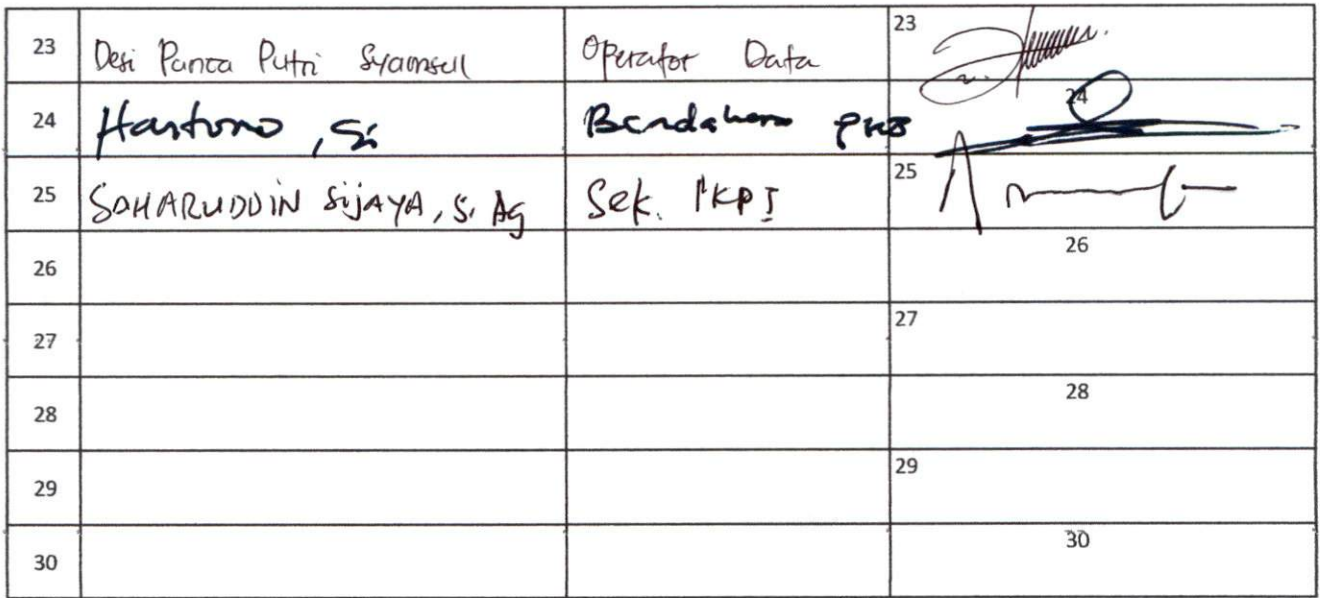 23 Desi Panca Putri Syamsul Operator Data 23
24 Hartono, Si Bendahara 24
25 SAHARUDDIN SIJAYA, S. Ag Sek. PKPI 25
26 26
27 27
28 28
29 29
30 30